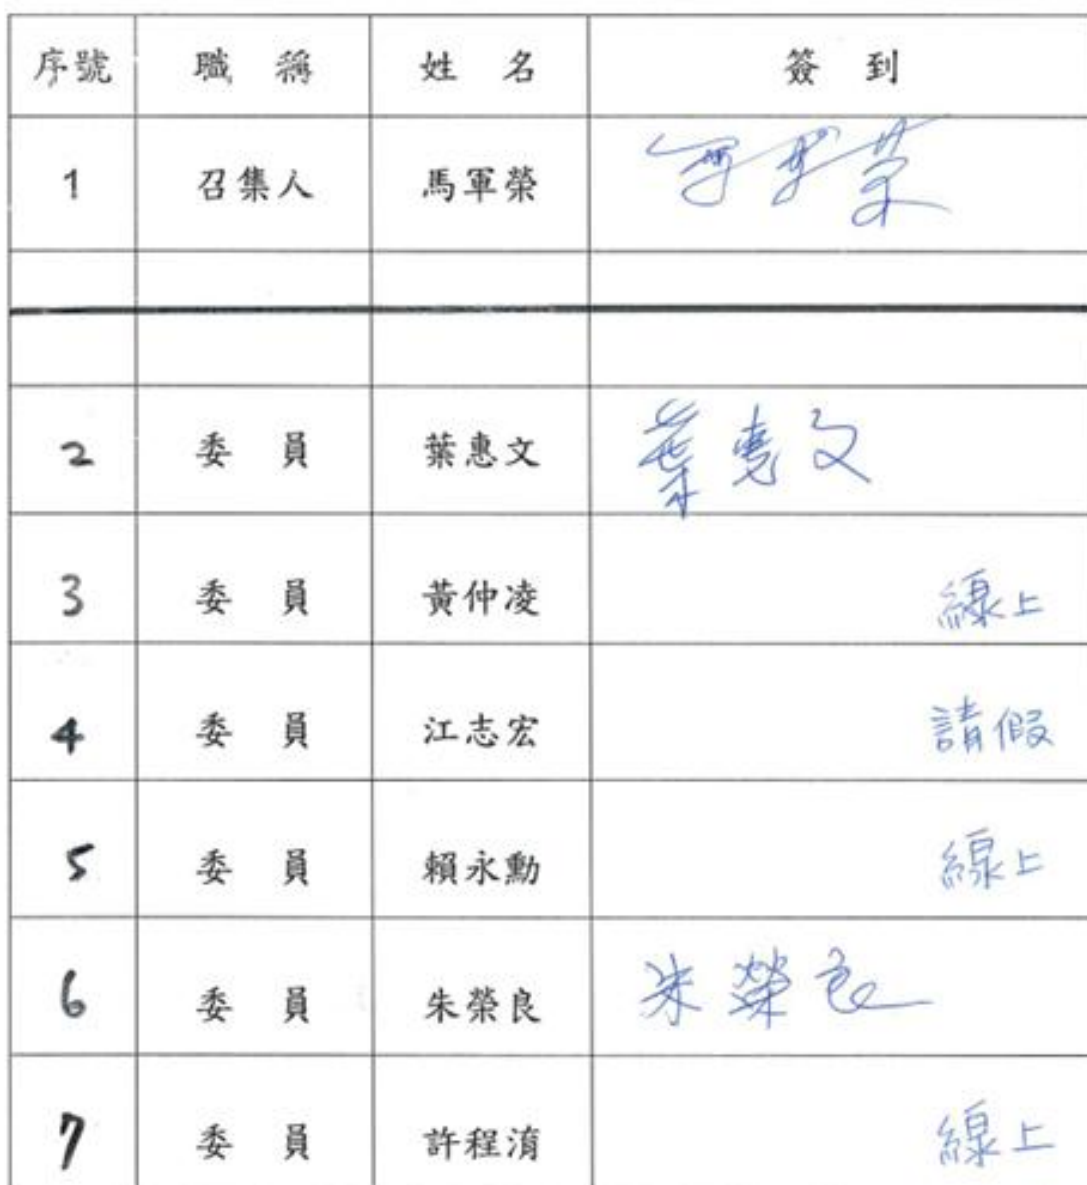 序號 職稱 姓名 簽到
1 召集人 馬軍榮
2 委員 葉惠文 葉惠文
3 委員 黃仲凌 線上
4 委員 江志宏 請假
5 委員 賴永勳 線上
6 委員 朱榮良 朱榮良
7 委員 許程淯 線上